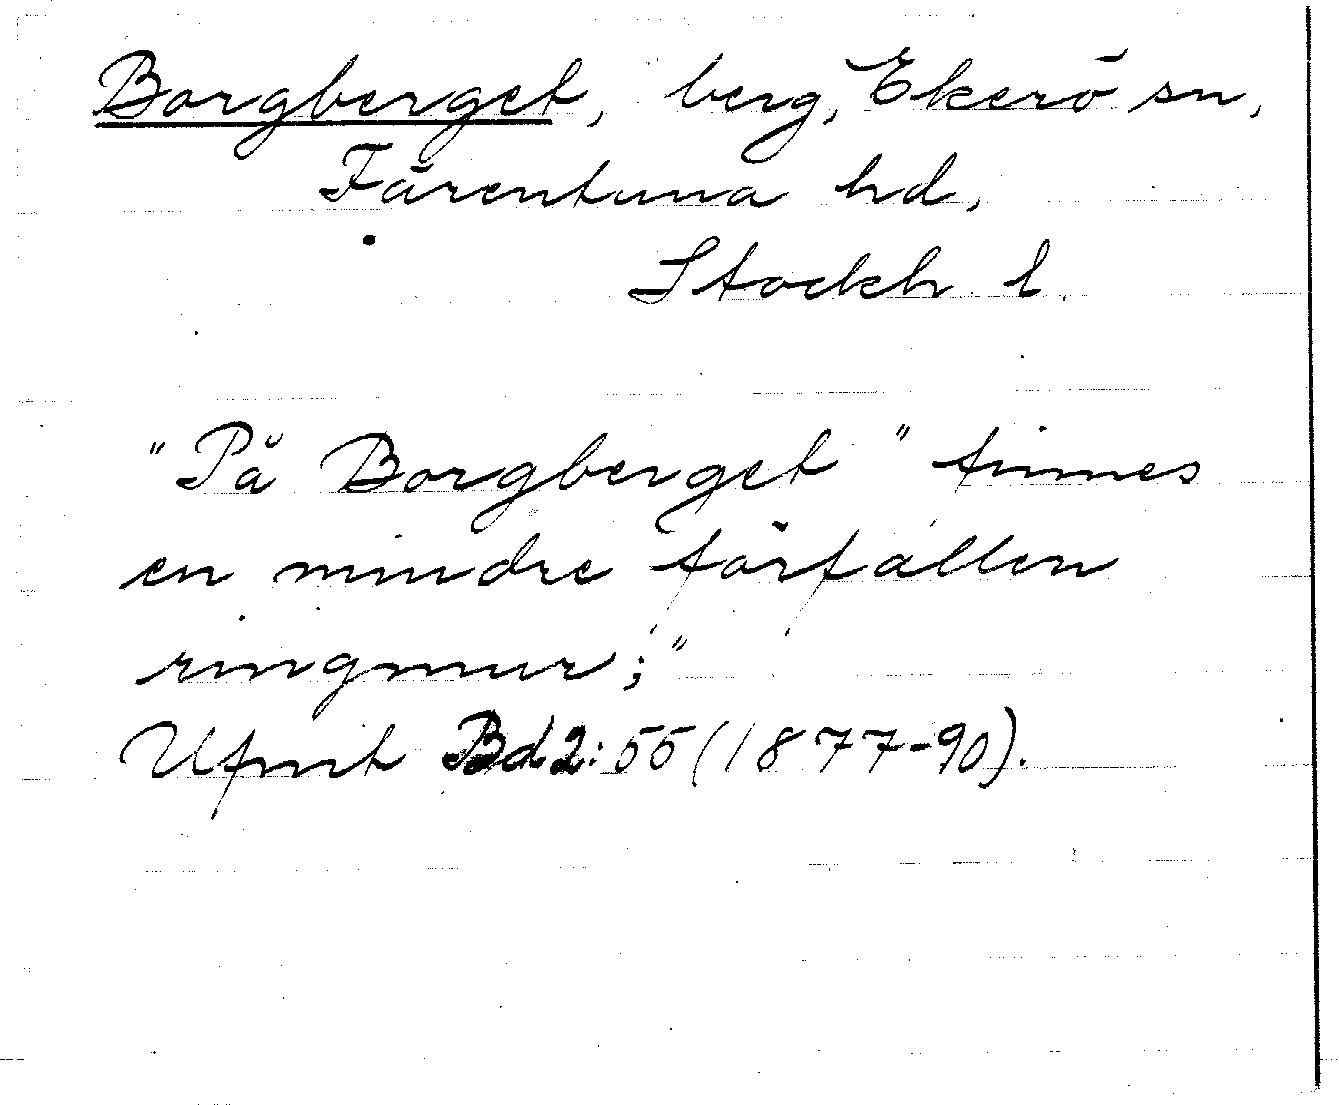 Borgberget, berg, Ekerö sn,
Färentuna hd,
Stockh l.
"På Borgberget" finnes
en mindre förfallen
ringmur;"
Ufmt Bd 2:55 (1877-90).